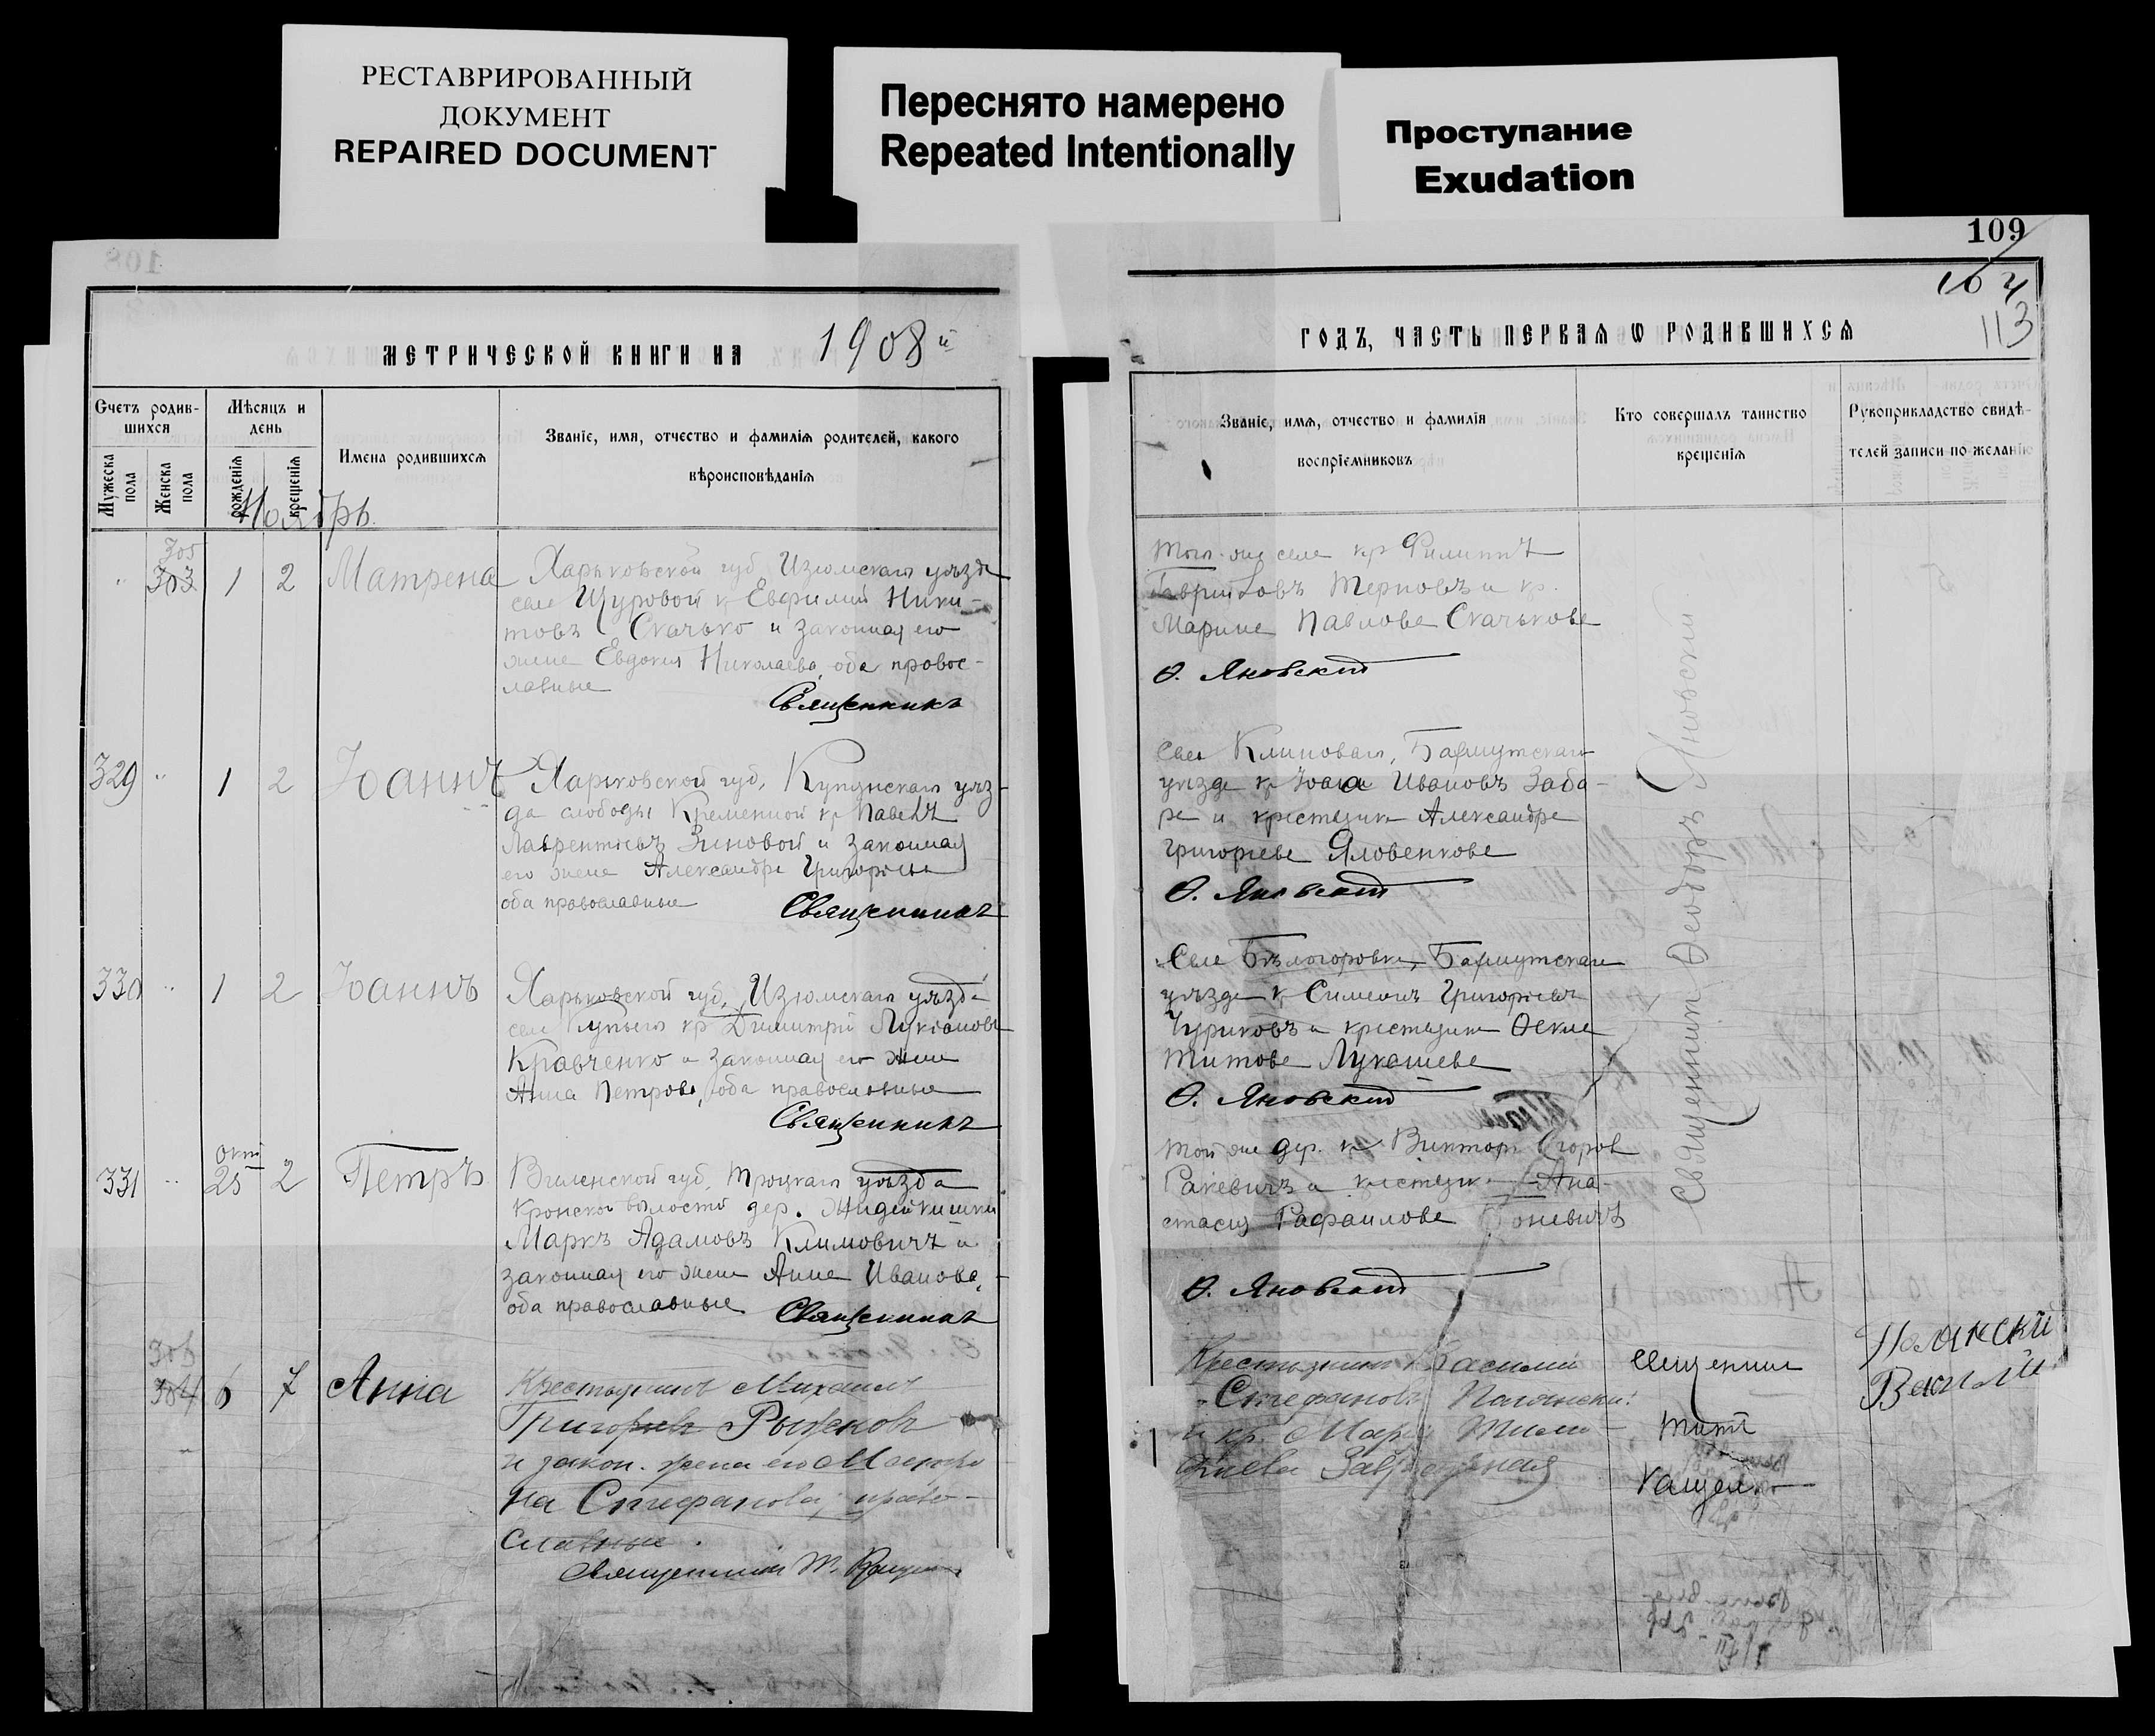 РЕСТАВРИРОВАННЫЙ
ДОКУМЕНТ
REPAIRED DOCUMENT
Переснято намерено
Repeated Intentionally
Проступание
Exudation
МЕТРИЧЕСКОЙ КНИГИ НА 1908 й
Счетъ родив-
шихся
Мужеска
пола
Женска
пола
Мѣсяцъ и
день
рожденія
крещенія
Имена родившихся
Званіе, имя, отчество и фамилія родителей, какого
вѣроисповѣданія
Ноябрь
305
303 1 2 Матрена
Харьковской губ Изюмскаго уѣзда
села Щуровой к Евфимій Ники-
товъ Скачько и законная его
жена Евдокия Николаева оба правос-
лавные
Священникъ
329 1 2 Іоаннъ
Харьковской губ, Купянскаго уѣз-
да слободы Кременной кр Павелъ
Лаврентіевъ Зиновой и законная
его жена Александра Григорьева
оба православные
Священникъ
330 1 2 Іоаннъ
Харьковской губ, Изюмскаго уѣзда
села кр Димитрій Лукіановъ
Кравченко и законная его жена
Анна Петрова, оба православные
Священникъ
331 окт 25 2 Петръ
Виленской губ, Троцкаго уѣзда
Кронской волости дер.
Маркъ Адамовъ Климовичъ и
законная его жена Анна Иванова,
оба православные
Священникъ
306
304 6 7 Анна
Крестьянинъ Михаилъ
Григорьев
и закон. жена его Матро
на Стефанова, право-
славные.
Священникъ Т.
109
104
113
ГОДЪ, ЧАСТЬ ПЕРВАЯ Ѡ РОДИВШИХСЯ
Званіе, имя, отчество и фамилія
воспріемниковъ
Кто совершалъ таинство
крещенія
Рукоприкладство свидѣ-
телей записи по желанію
Того же села кр Филиппъ
Терновъ и кр.
Марина Павлова Скачькова
Ѳ. Яновскій
Села Клиноваго, Бахмутскаго
уѣзда кр Ивановъ Заба-
ра и крестьянка Александра
Григорьева Яловенкова
Ѳ. Яновскій
Села Бѣлогоровки, Бахмутскаго
уѣзда к Симеонъ Григорьевъ
Чуриковъ и крестьянка Ѳекла
Титова Лукашева
Ѳ. Яновскій
Той же дер. к Викторъ Егоров
Ракевичъ и крестьянка Ана-
стасія Рафаилова
Ѳ. Яновскій
Священникъ Ѳеодоръ Яновскій
Крестьянинъ Василий
Стефановъ
и кр. Мар
священник
Тит
Полянский
Василий